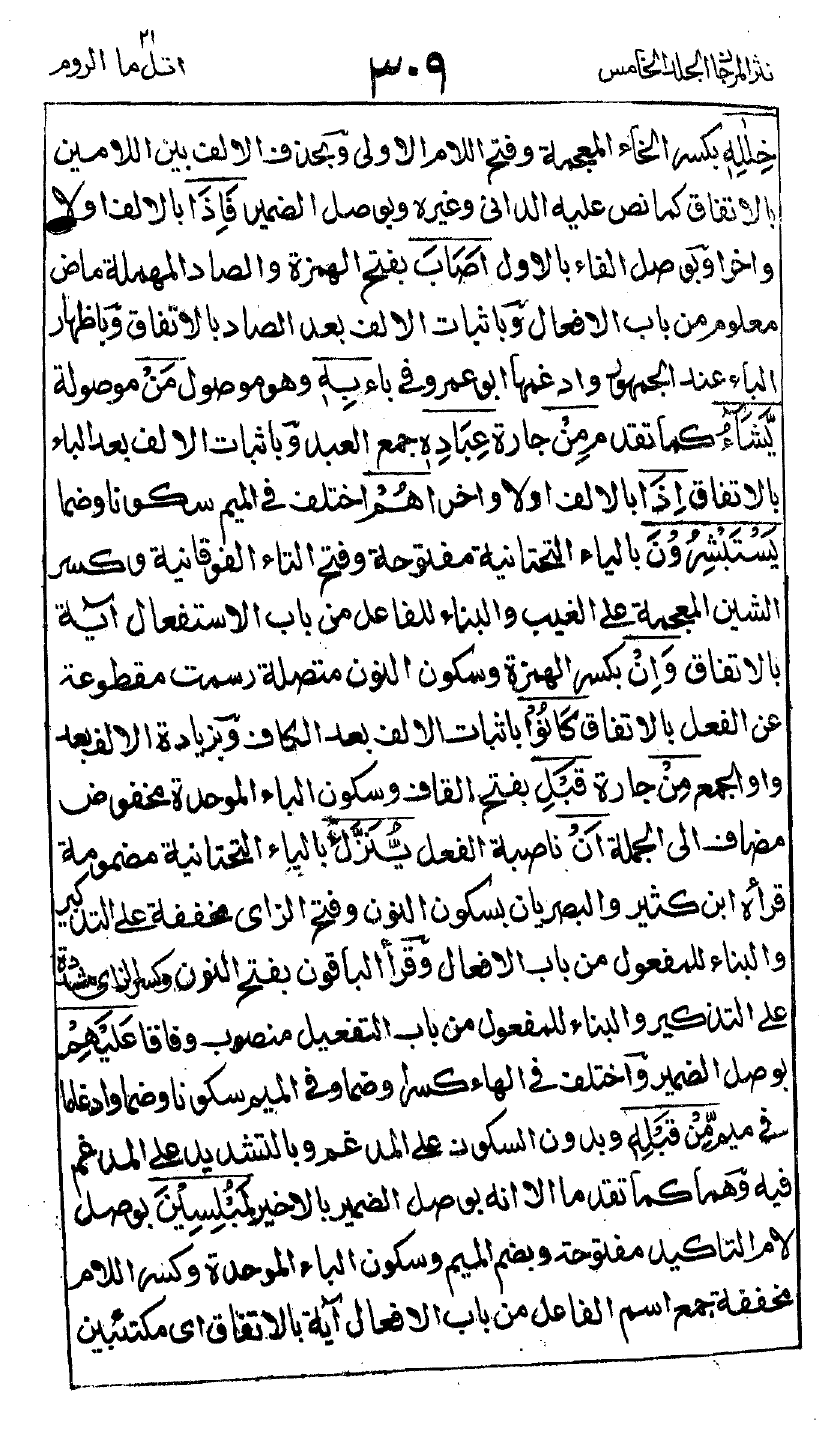 نثر المرجان الجلد الخامس ٣٠٩ اتل ما ٢١ الروم
خِلٰلِهٖ بكسر الخاء المعجمة وفتح اللام الاولى وبحذف الالف بين اللامين
بالاتفاق كما نص عليه الدانى وغيره وبوصل الضمير فَاِذَا بالالف اولا
واخرا وبوصل الفاء بالاول اَصَابَ بفتح الهمزة والصاد المهملة ماض
معلوم من باب الافعال وباثبات الالف بعد الصاد بالاتفاق وباظهار
الباء عند الجمهور وادغمها ابو عمرو فى باء بِهٖ وهو موصول مَنْ موصولة
يَّشَآءُ كما تقدم مِنْ جارة عِبَادِهٖ جمع العبد وباثبات الالف بعد الباء
بالاتفاق اِذَا بالالف اولا واخرا هُمْ اختلف فى الميم سكونا وضما
يَسْتَبْشِرُوْنَ بالياء التحتانية مفتوحة وفتح التاء الفوقانية وكسر
الشين المعجمة على الغيب والبناء للفاعل من باب الاستفعال آية
بالاتفاق وَاِنْ بكسر الهمزة وسكون النون متصلة رسمت مقطوعة
عن الفعل بالاتفاق كَانُوْا باثبات الالف بعد الكاف وبزيادة الالف بعد
واو الجمع مِنْ جارة قَبْلِ بفتح القاف وسكون الباء الموحدة مخفوض
مضاف الى الجملة اَنْ ناصبة الفعل يُّنَزَّلَ بالياء التحتانية مضمومة
قرأه ابن كثير والبصريان بسكون النون وفتح الزاى مخففة على التذكير
والبناء للمفعول من باب الافعال وقرأ الباقون بفتح النون وكسر الزاى مشددة
على التذكير والبناء للمفعول من باب التفعيل منصوب وفاقا عَلَيْهِمْ
بوصل الضمير واختلف فى الهاء كسرا وضما وفى الميم سكونا وضما وادغاما
فى ميم مِّنْ قَبْلِهٖ وبدون السكون على المدغم وبالتشديد على المدغم
فيه وهما كما تقدما الا انه بوصل الضمير بالاخير لَمُبْلِسِيْنَ بوصل
لام التاكيد مفتوحة وبضم الميم وسكون الباء الموحدة وكسر اللام
مخففة جمع اسم الفاعل من باب الافعال آية بالاتفاق اى مكتئبين